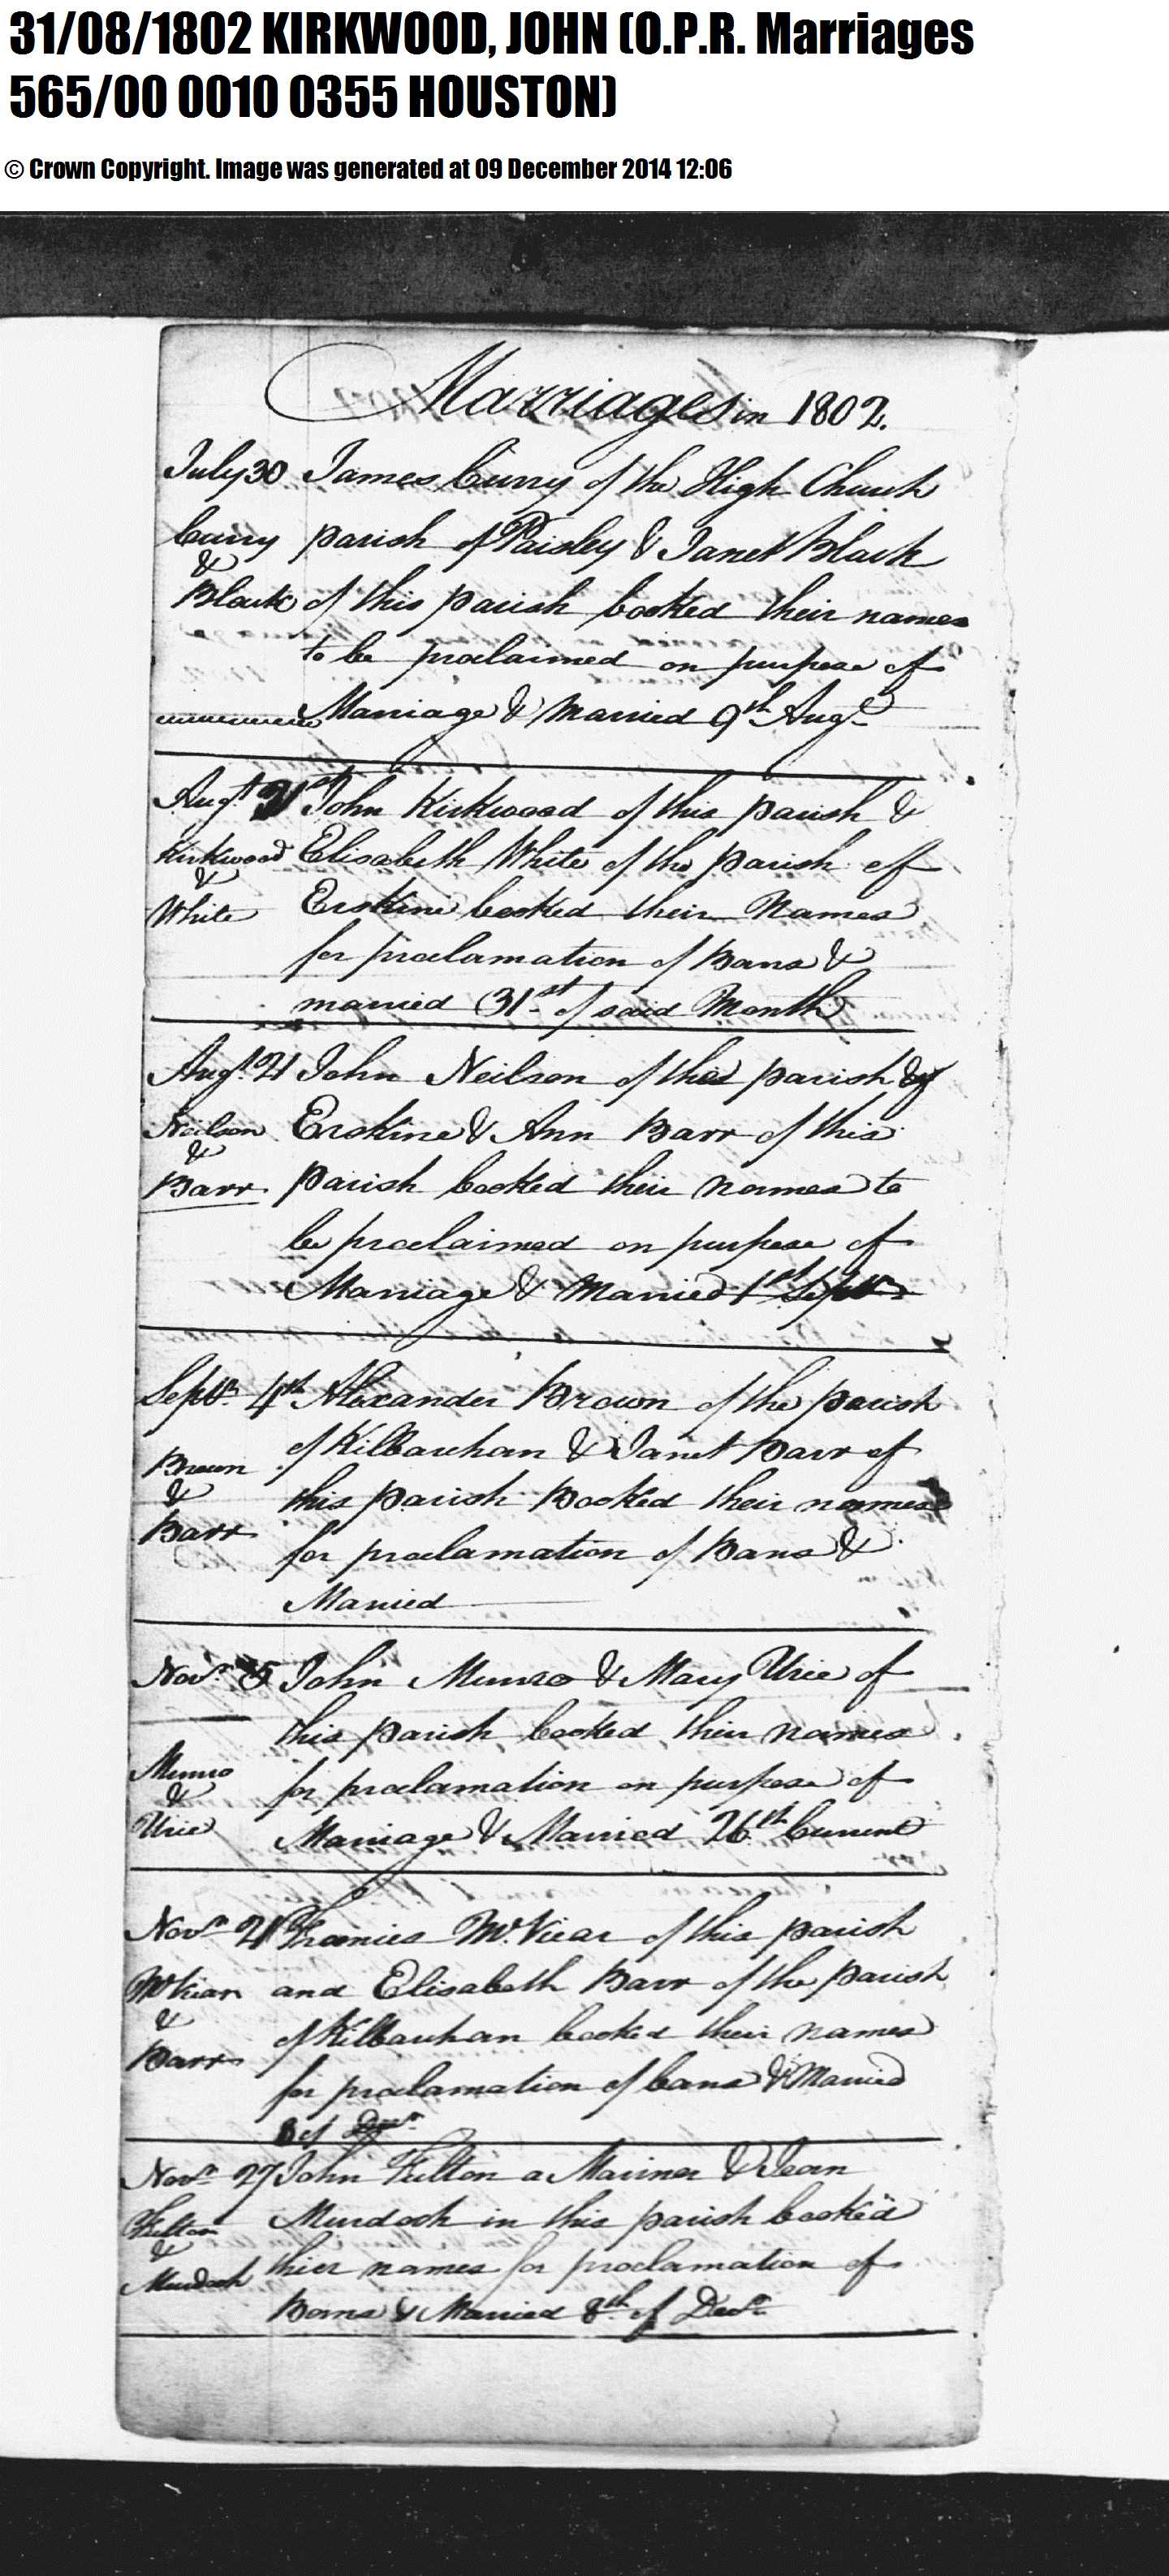 31/08/1802 KIRKWOOD, JOHN (O.P.R. Marriages
565/00 0010 0355 HOUSTON)
© Crown Copyright. Image was generated at 09 December 2014 12:06
Marriages in 1802.
July 30 James Curry of the High Church
Curry parish of Paisley & Janet Black
&
Black of this parish booked their names
to be proclaimed on purpose of
Marriage & Married 9th Augt
Augt 21st John Kirkwood of this parish &
Kirkwood Elisabeth White of the parish of
&
White Erskine booked their Names
for proclamation of Bans &
married 31st of said Month
Augt 21 John Neilson of the parish of
Neilson Erskine & Ann Barr of this
&
Barr parish booked their names to
be proclaimed on purpose of
Marriage & Married 1st Septr
Septr 4th Alexander Brown of the parish
of Kilbarchan & Janet Barr of
Brown
& this parish Booked their names
Barr for proclamation of Bans &
Married
Novr 5 John Munro & Mary Urie of
this parish booked their names
Munro
& for proclamation on purpose of
Urie Marriage & Married 26th Current
Novr 21 Francies McVicar of this parish
and Elisabeth Barr of the parish
&
Barr of Kilbarchan booked their names
for proclamation of bans & Married
8 of Decr
Novr 27 John Fulton a Mariner & Jean
Fulton Murdoch in this parish booked
&
Murdoch thier names for proclamation of
Bans & Married 8th of Decr